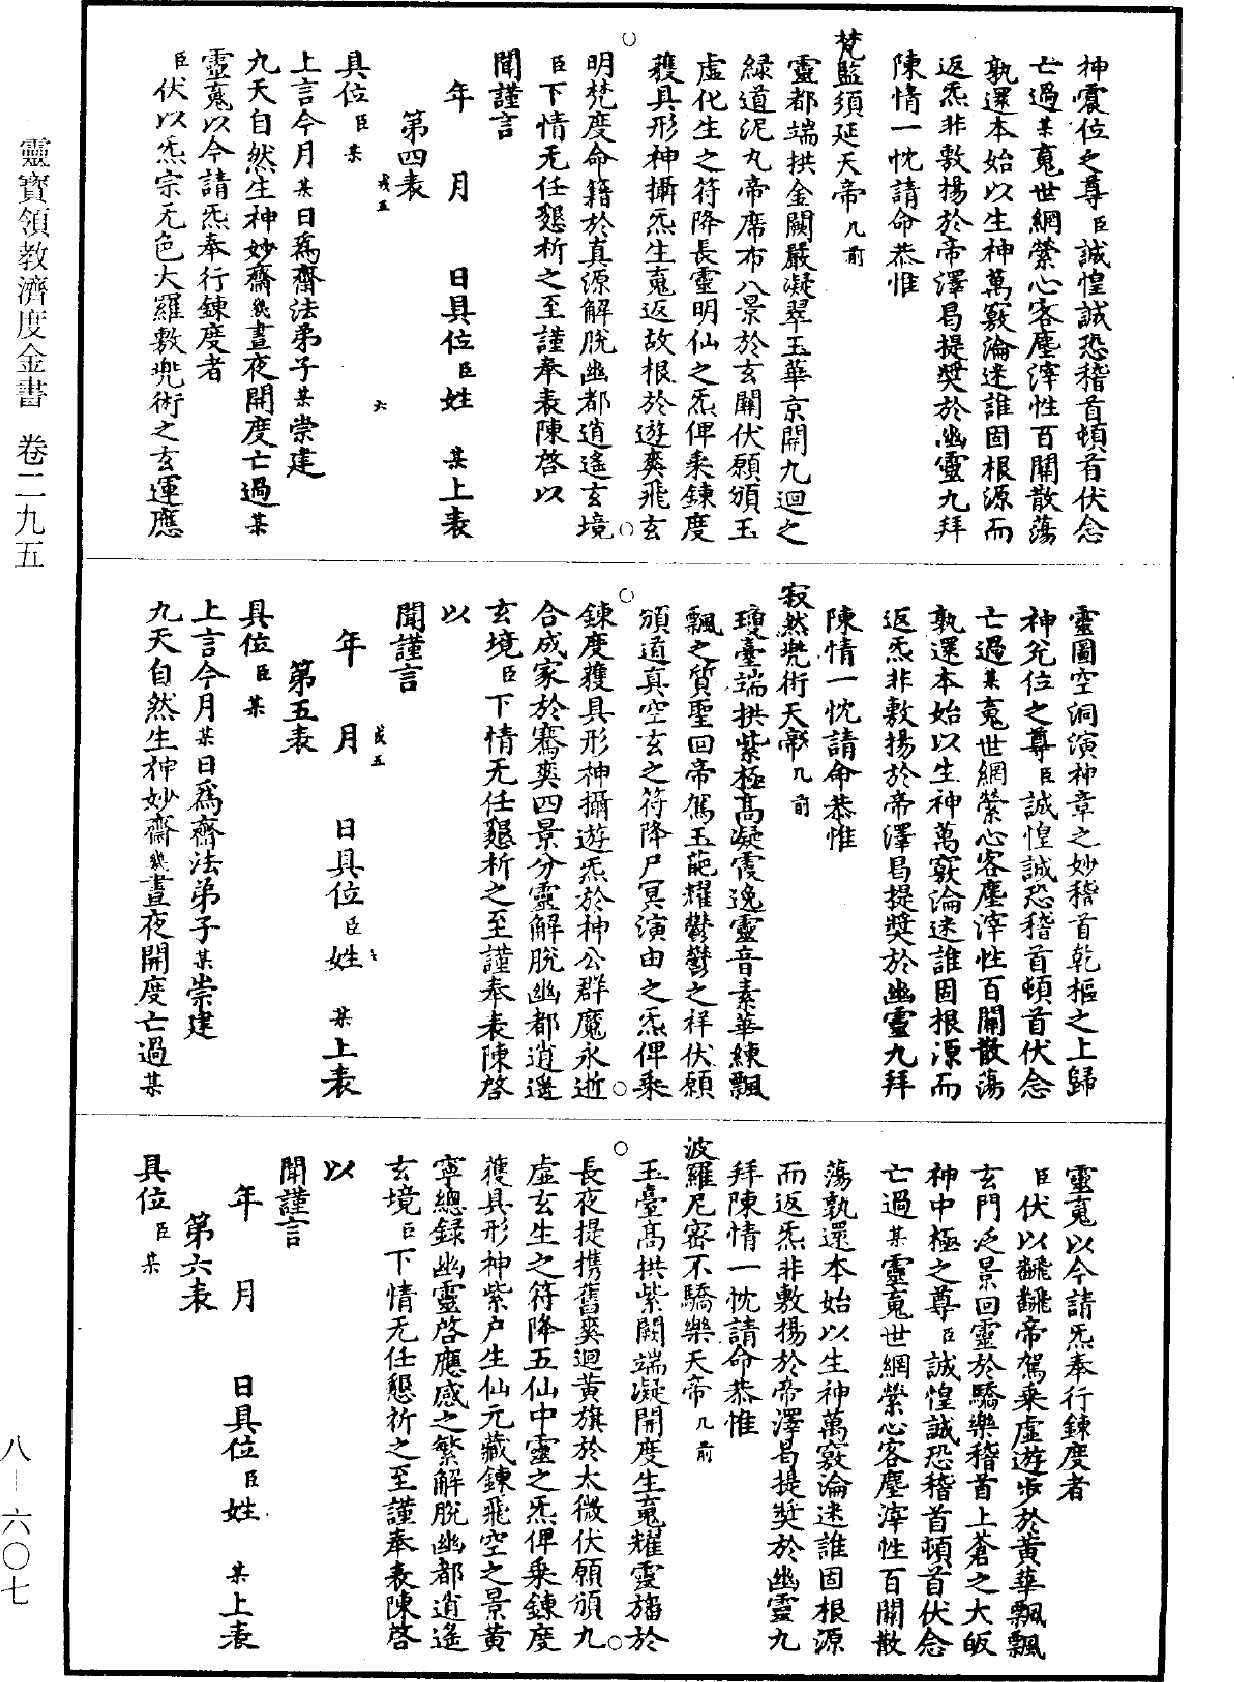 靈寶領教濟度金書 卷二九五
八—六〇七
神震位之尊臣誠惶誠恐稽首頓首伏念
亡過某䰟世網縈心客塵滓性百關散蕩
孰還本始以生神萬竅淪迷誰固根源而
返炁非敷揚於帝澤曷提獎於幽靈九拜
陳情一忱請命恭惟
梵監須延天帝几前
靈都端拱金闕嚴凝翠玉華京開九迴之
緑道泥丸帝席布八景於玄關伏願頒玉
虛化生之符降長靈明仙之炁俾乘鍊度
穫具形神攝炁生䰟返故根於遊爽飛玄
明梵度命籍於真源解脱幽都逍遙玄境
臣下情无任懇祈之至謹奉表陳啓以
聞謹言
年 月 日具位臣姓 某上表
戌五 六
第四表
具位臣某
上言今月某日爲齋法弟子某崇建
九天自然生神妙齋幾晝夜開度亡過某
靈䰟以今請炁奉行鍊度者
臣伏以炁宗无色大羅敷兠術之玄運應
靈圖空洞演神章之妙稽首乾樞之上歸
神兊位之尊臣誠惶誠恐稽首頓首伏念
亡過某䰟世網縈心客塵滓性百關散蕩
孰還本始以生神萬竅淪迷誰固根源而
返炁非敷揚於帝澤曷提獎於幽靈九拜
陳情一忱請命恭惟
寂然兠術天帝几前
瓊臺端拱紫極高凝霞逸靈音素華練飄
飄之質聖回帝駕玉葩耀鬱鬱之祥伏願
頒道真空玄之符降尸冥演由之炁俾乘
鍊度穫具形神攝遊炁於神公群魔永逝
合成家於騫爽四景分靈解脱幽都逍遙
玄境臣下情无任懇祈之至謹奉表陳啓
以
聞謹言
年 月 日具位臣姓 某上表
戌五 七
第五表
具位臣某
上言今月某日爲齋法弟子某崇建
九天自然生神妙齋幾晝夜開度亡過某
靈䰟以今請炁奉行鍊度者
臣伏以飜飜帝駕乘虛遊步於黃華飄飄
玄門泛景回靈於驕樂稽首上蒼之大皈
神中極之尊臣誠惶誠恐稽首頓首伏念
亡過某靈䰟世網縈心客塵滓性百關散
蕩孰還本始以生神萬竅淪迷誰固根源
而返炁非敷揚於帝澤曷提獎於幽靈九
拜陳情一忱請命恭惟
波羅尼密不驕樂天帝几前
玉臺高拱紫闕端凝開度生䰟耀靈旛於
長夜提携舊爽迴黃旗於太微伏願頒九
虛玄生之符降五仙中靈之炁俾乘鍊度
穫具形神紫户生仙元藏鍊飛空之景黃
寧總録幽靈啓應感之繁解脱幽都逍遙
玄境臣下情无任懇祈之至謹奉表陳啓
以
聞謹言
年 月 日具位臣姓 某上表
第六表
具位臣某